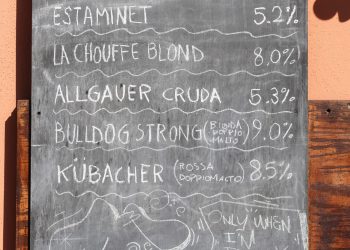 ESTAMINET 5.2%
LA CHOUFFE BLOND 8.0%
ALLGAUER CRUDA 5.3%
BULLDOG STRONG (BIONDA DOPPIO MALTO) 9.0%
KÜBACHER (ROSSA DOPPIOMALTO) 8.5%
"ONLY WHEN
I'M